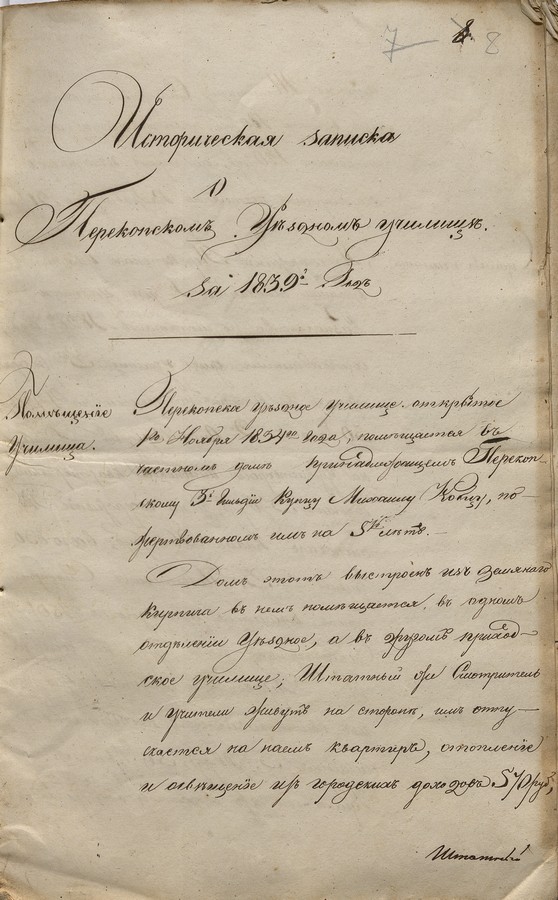 7 8 8
Историческая записка
о
Перекопскомъ Уѣздномъ училищѣ.
за 1839й Годъ
Помѣщенïе
Училища.
Перекопска уѣздна училище открытое
1го Ноября 1834го года, помѣщается въ
частномъ домѣ принадлежащемъ Перекоп-
скому 3й гильдiи купцу Михаилу, по-
жертвованномъ имъ на 5ть лѣтъ.
Домъ этотъ выстроенъ изъ землянаго
кирпича въ немъ помѣщается въ одномъ
отдѣленiи Уѣздное, а въ другомъ приход-
ское училище; Штатный же Смотритель
и учители живутъ на сторонѣ, имъ отпу-
скается на наемъ квартиръ, отопленïе
и освѣщенïе изъ городскихъ доходовъ 570 руб,
Штатный